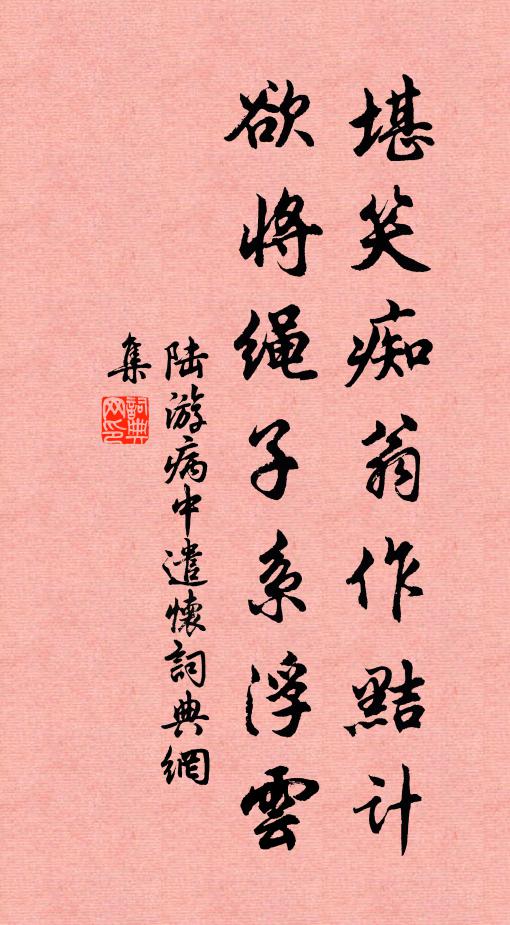 堪笑痴翁作黠计
欲将绳子系浮雲
陆游病中遣懷詞典網
集
詞典網印